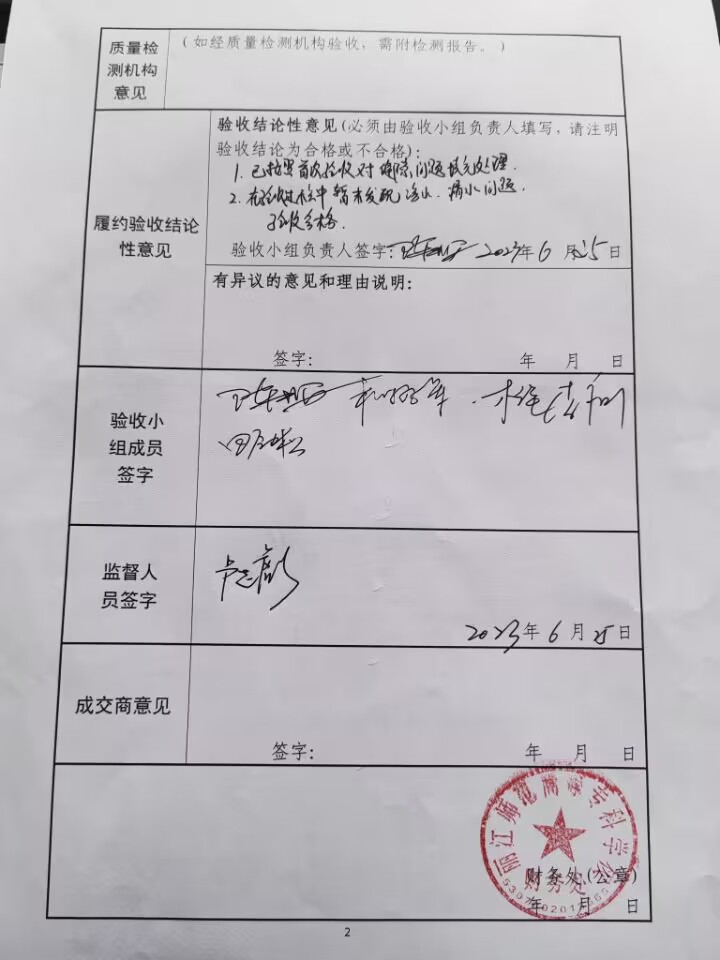 质量检
测机构
意见
(如经质量检测机构验收，需附检测报告。)
履约验收结论
性意见
验收结论性意见(必须由验收小组负责人填写，请注明
验收结论为合格或不合格)：
1. 已按照首次验收对 问题 处理.
2. 在验收过程中暂未发现渗水. 漏水问题.
验收合格.
验收小组负责人签字: 2023年6月25日
有异议的意见和理由说明：
签字: 年 月 日
验收小
组成员
签字
监督人
员签字
2023年6月25日
成交商意见
签字: 年 月 日
丽江师范高等专科学校
财务处
财务处(公章)
年 月 日
2